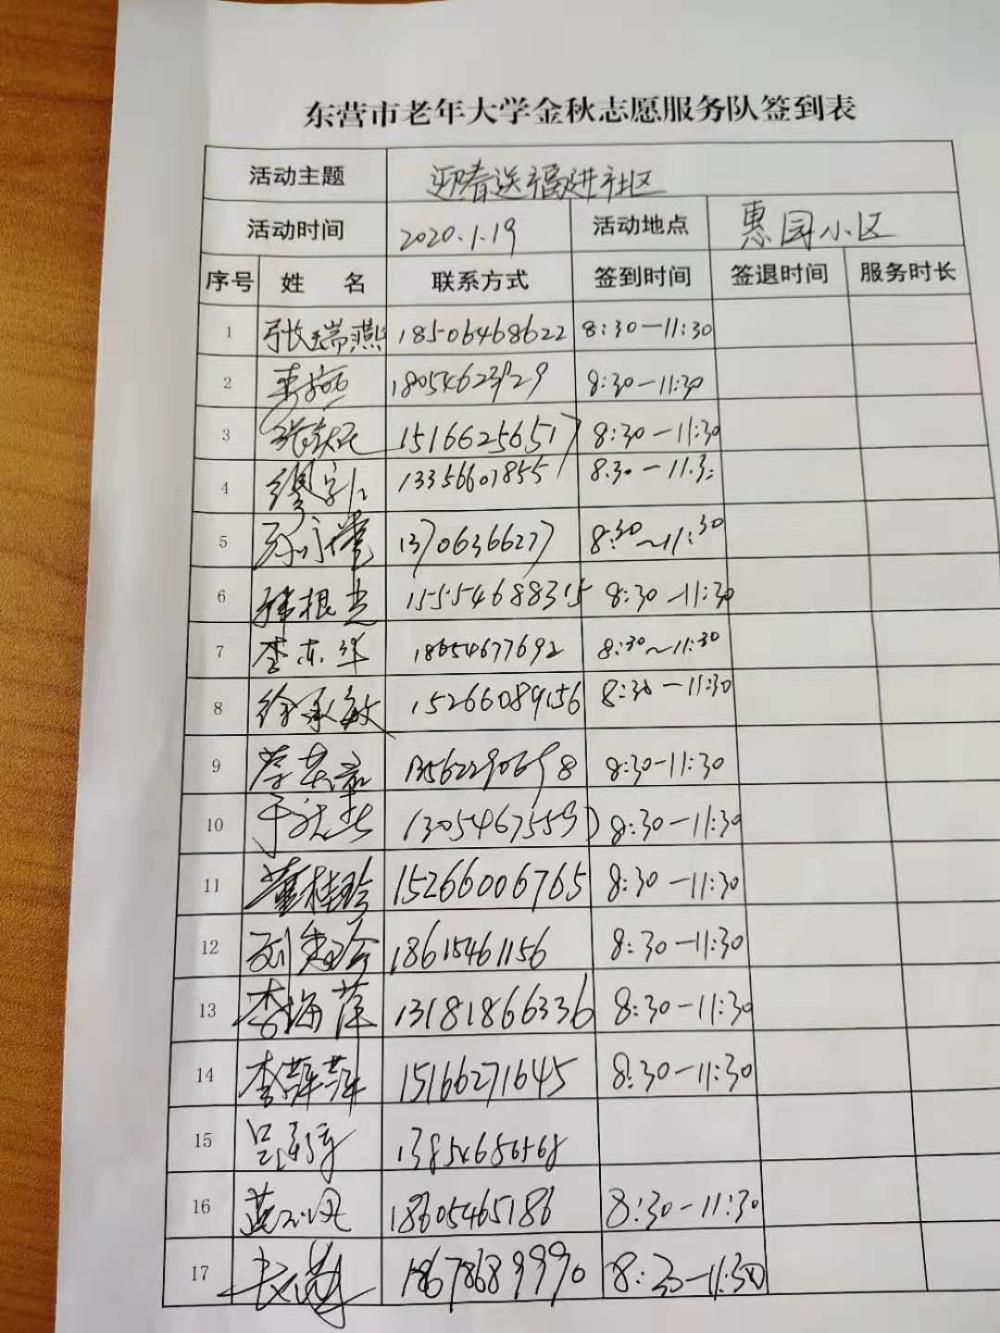 东营市老年大学金秋志愿服务队签到表
活动主题 迎春送福进社区
活动时间 2020.1.19 活动地点 惠园小区
序号 姓 名 联系方式 签到时间 签退时间 服务时长
1 张瑞燕 18506468622 8:30-11:30
2 18054623929 8:30-11:30
3 15166256517 8:30-11:30
4 13356607855 8:30-11:3
5 13706366277 8:30~11:30
6 韩根光 15554688315 8:30-11:30
7 李东华 18654677692 8:30~11:30
8 徐承敏 15266089156 8:30-11:30
9 13562290698 8:30-11:30
10 8:30-11:30
11 董桂珍 15266006765 8:30-11:30
12 刘 18615461156 8:30-11:30
13 李海萍 13181866336 8:30-11:30
14 李萍萍 15166271645 8:30-11:30
15 吕
16 18605465186 8:30-11:30
17 18678689990 8:30-11:30